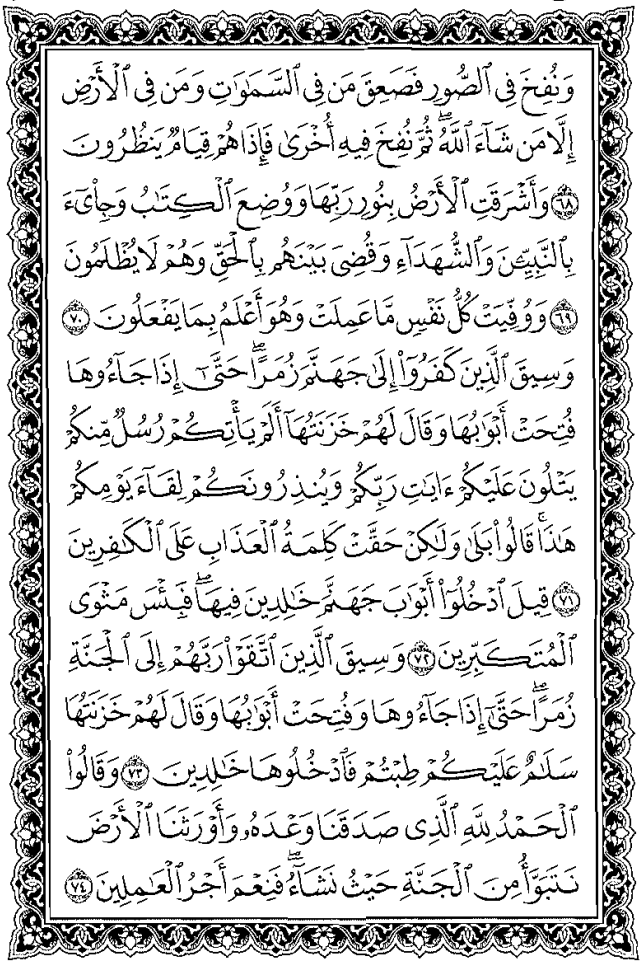 وَنُفِخَ فِي ٱلصُّورِ فَصَعِقَ مَن فِي ٱلسَّمَٰوَٰتِ وَمَن فِي ٱلْأَرْضِ
إِلَّا مَن شَآءَ ٱللَّهُۖ ثُمَّ نُفِخَ فِيهِ أُخْرَىٰ فَإِذَا هُمْ قِيَامٌ يَنظُرُونَ
﴿٦٨﴾ وَأَشْرَقَتِ ٱلْأَرْضُ بِنُورِ رَبِّهَا وَوُضِعَ ٱلْكِتَٰبُ وَجِا۟ىٓءَ
بِٱلنَّبِيِّـۧنَ وَٱلشُّهَدَآءِ وَقُضِيَ بَيْنَهُم بِٱلْحَقِّ وَهُمْ لَا يُظْلَمُونَ
﴿٦٩﴾ وَوُفِّيَتْ كُلُّ نَفْسٍ مَّا عَمِلَتْ وَهُوَ أَعْلَمُ بِمَا يَفْعَلُونَ ﴿٧٠﴾
وَسِيقَ ٱلَّذِينَ كَفَرُوٓا۟ إِلَىٰ جَهَنَّمَ زُمَرًاۖ حَتَّىٰٓ إِذَا جَآءُوهَا
فُتِحَتْ أَبْوَٰبُهَا وَقَالَ لَهُمْ خَزَنَتُهَآ أَلَمْ يَأْتِكُمْ رُسُلٌ مِّنكُمْ
يَتْلُونَ عَلَيْكُمْ ءَايَٰتِ رَبِّكُمْ وَيُنذِرُونَكُمْ لِقَآءَ يَوْمِكُمْ
هَٰذَاۚ قَالُوا۟ بَلَىٰ وَلَٰكِنْ حَقَّتْ كَلِمَةُ ٱلْعَذَابِ عَلَى ٱلْكَٰفِرِينَ
﴿٧١﴾ قِيلَ ٱدْخُلُوٓا۟ أَبْوَٰبَ جَهَنَّمَ خَٰلِدِينَ فِيهَاۖ فَبِئْسَ مَثْوَى
ٱلْمُتَكَبِّرِينَ ﴿٧٢﴾ وَسِيقَ ٱلَّذِينَ ٱتَّقَوْا۟ رَبَّهُمْ إِلَى ٱلْجَنَّةِ
زُمَرًاۖ حَتَّىٰٓ إِذَا جَآءُوهَا وَفُتِحَتْ أَبْوَٰبُهَا وَقَالَ لَهُمْ خَزَنَتُهَا
سَلَٰمٌ عَلَيْكُمْ طِبْتُمْ فَٱدْخُلُوهَا خَٰلِدِينَ ﴿٧٣﴾ وَقَالُوا۟
ٱلْحَمْدُ لِلَّهِ ٱلَّذِي صَدَقَنَا وَعْدَهُۥ وَأَوْرَثَنَا ٱلْأَرْضَ
نَتَبَوَّأُ مِنَ ٱلْجَنَّةِ حَيْثُ نَشَآءُۖ فَنِعْمَ أَجْرُ ٱلْعَٰمِلِينَ ﴿٧٤﴾